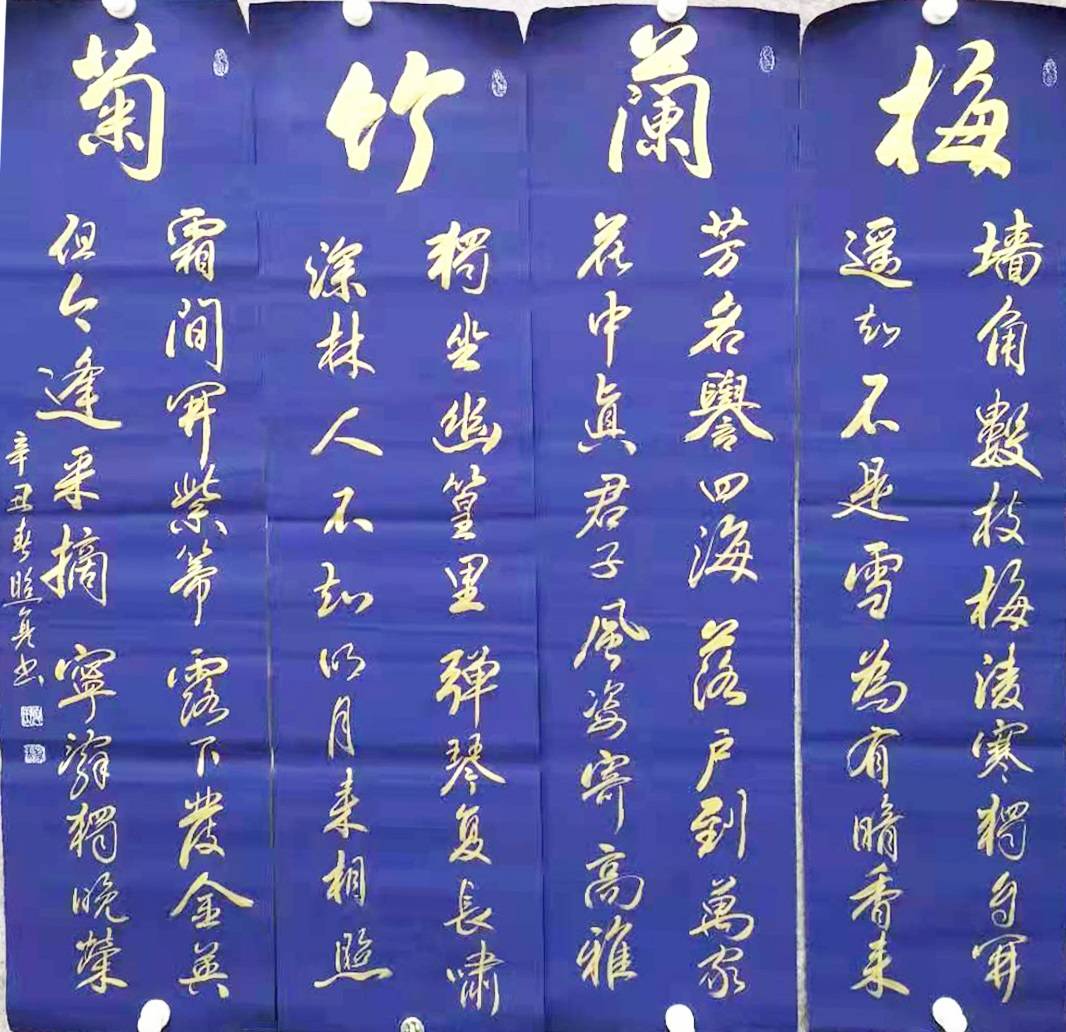 梅
墙角數枝梅凌寒獨自開
遥知不是雪為有暗香来
蘭
芳名譽四海落户到萬家
花中真君子風姿寄高雅
竹
獨坐幽篁里弹琴复長嘯
深林人不知明月来相照
菊
霜間開紫蒂露下發金英
但令逢采摘寧辞獨晚榮
辛丑春照亮书